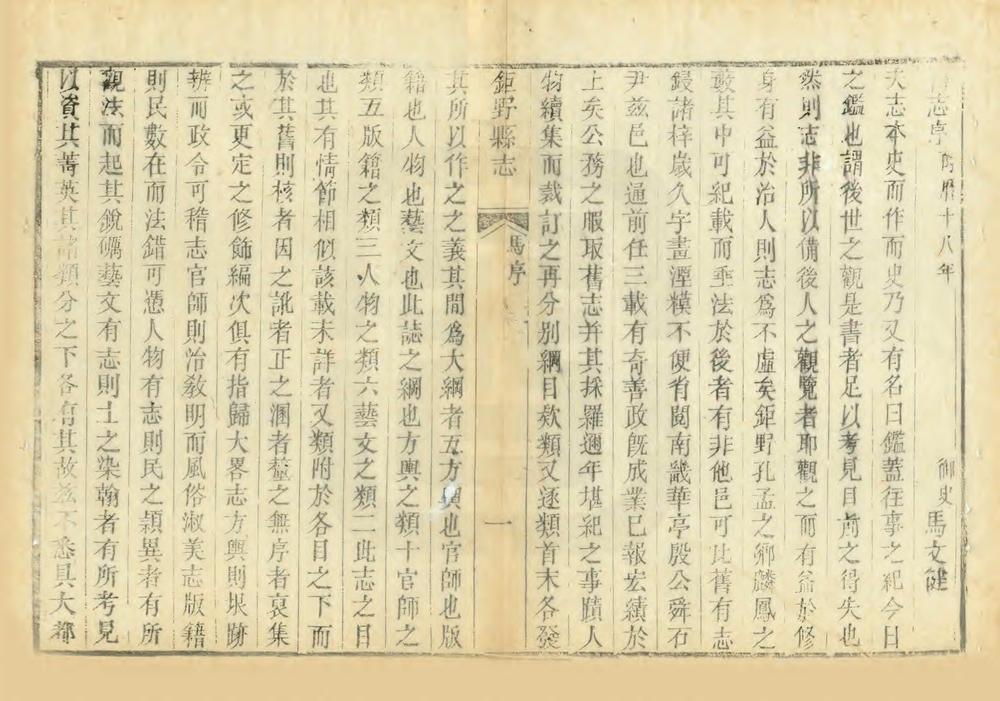 志序 萬曆十八年 御史馬文健
夫志本史而作而史乃又有名曰鑑蓋往事之紀今日
之鑑也謂後世之觀是書者足以考見目前之得失也
然則志非所以備後人之觀覽者耶觀之而有益於修
身有益於治人則志為不虛矣鉅野孔孟之鄉麟鳳之
藪其中可紀載而垂法於後者有非他邑可比舊有志
鋟諸梓歲久字畫湮糢不便省閱南畿華亭殷公舜石
尹茲邑也通前任三載有奇善政旣成業已報宏績於
上矣公務之暇取舊志并其採羅邇年堪紀之事蹟人
物續集而裁訂之再分別綱目欸類又逐類首末各發
鉅野縣志 馬序 一
其所以作之之義其間為大綱者五方輿也官師也版
籍也人物也藝文也此誌之綱也方輿之類十官師之
類五版籍之類三人物之類六藝文之類二此志之目
也其有情節相似該載未詳者又類附於各目之下而
於其舊則核者因之訛者正之溷者釐之無序者裒集
之或更定之修飾編次俱有指歸大畧志方輿則垠跡
辨而政令可稽志官師則治敎明而風俗淑美志版籍
則民數在而法錯可憑人物有志則民之穎異者有所
觀法而起其銳礪藝文有志則士之染翰者有所考見
以資其菁英其諸類分之下各有其故茲不悉具大都